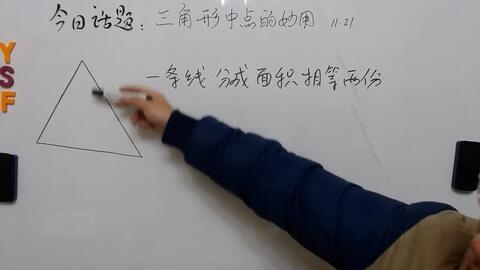 今日话题：三角形中点的妙用 11.21
一条线分成面积相等两份
Y
S
F